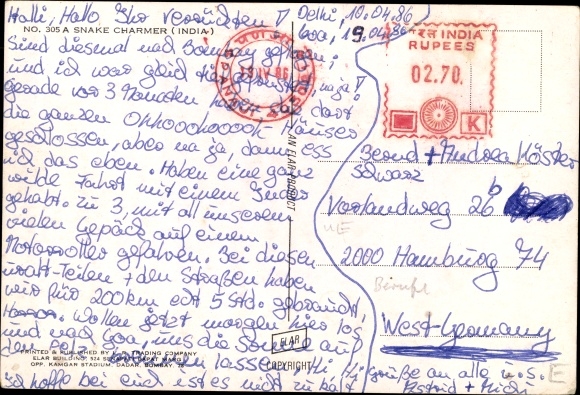 Halli, Hallo Ihr Verrückten!
Delhi, 10.04.86
Goa, 19.04.86
NO. 305 A SNAKE CHARMER (INDIA)
Sind diesmal nach Bombay geflogen,
und ich war gleich na ja!
gerade vor 3 Monaten dort
die ganzen Ohhooohoooh-Häuser
geschlossen, aber na ja, dann
ich das eben. Haben eine ganz
wilde Fahrt mit einem Inder
gehabt. Zu 3, mit all unserem
vielen Gepäck auf einem
Motorroller gefahren. Bei diesen
-Teilen + den Straßen haben
wir für 200 km echt 5 Std. gebraucht.
Wollen jetzt morgen hier los
und nach Goa, uns die Sonne auf
den Pelz lassen. Hi, Hi
ich hoffe bei euch ist es nicht zu kalt
Grüße an alle u.s.
Astrid +
PRINTED & PUBLISHED BY TRADING COMPANY
ELAR BUILDING, 524 SENAPATI BAPAT MARG
OPP. KAMGAR STADIUM, DADAR, BOMBAY
AN ELAR PRODUCT
ELAR
COPYRIGHT
INDIA
RUPEES
02.70
K
Bernd + Andrea
Schwarz
Vorlandweg 26 b
2000 Hamburg 74
West-Germany
E